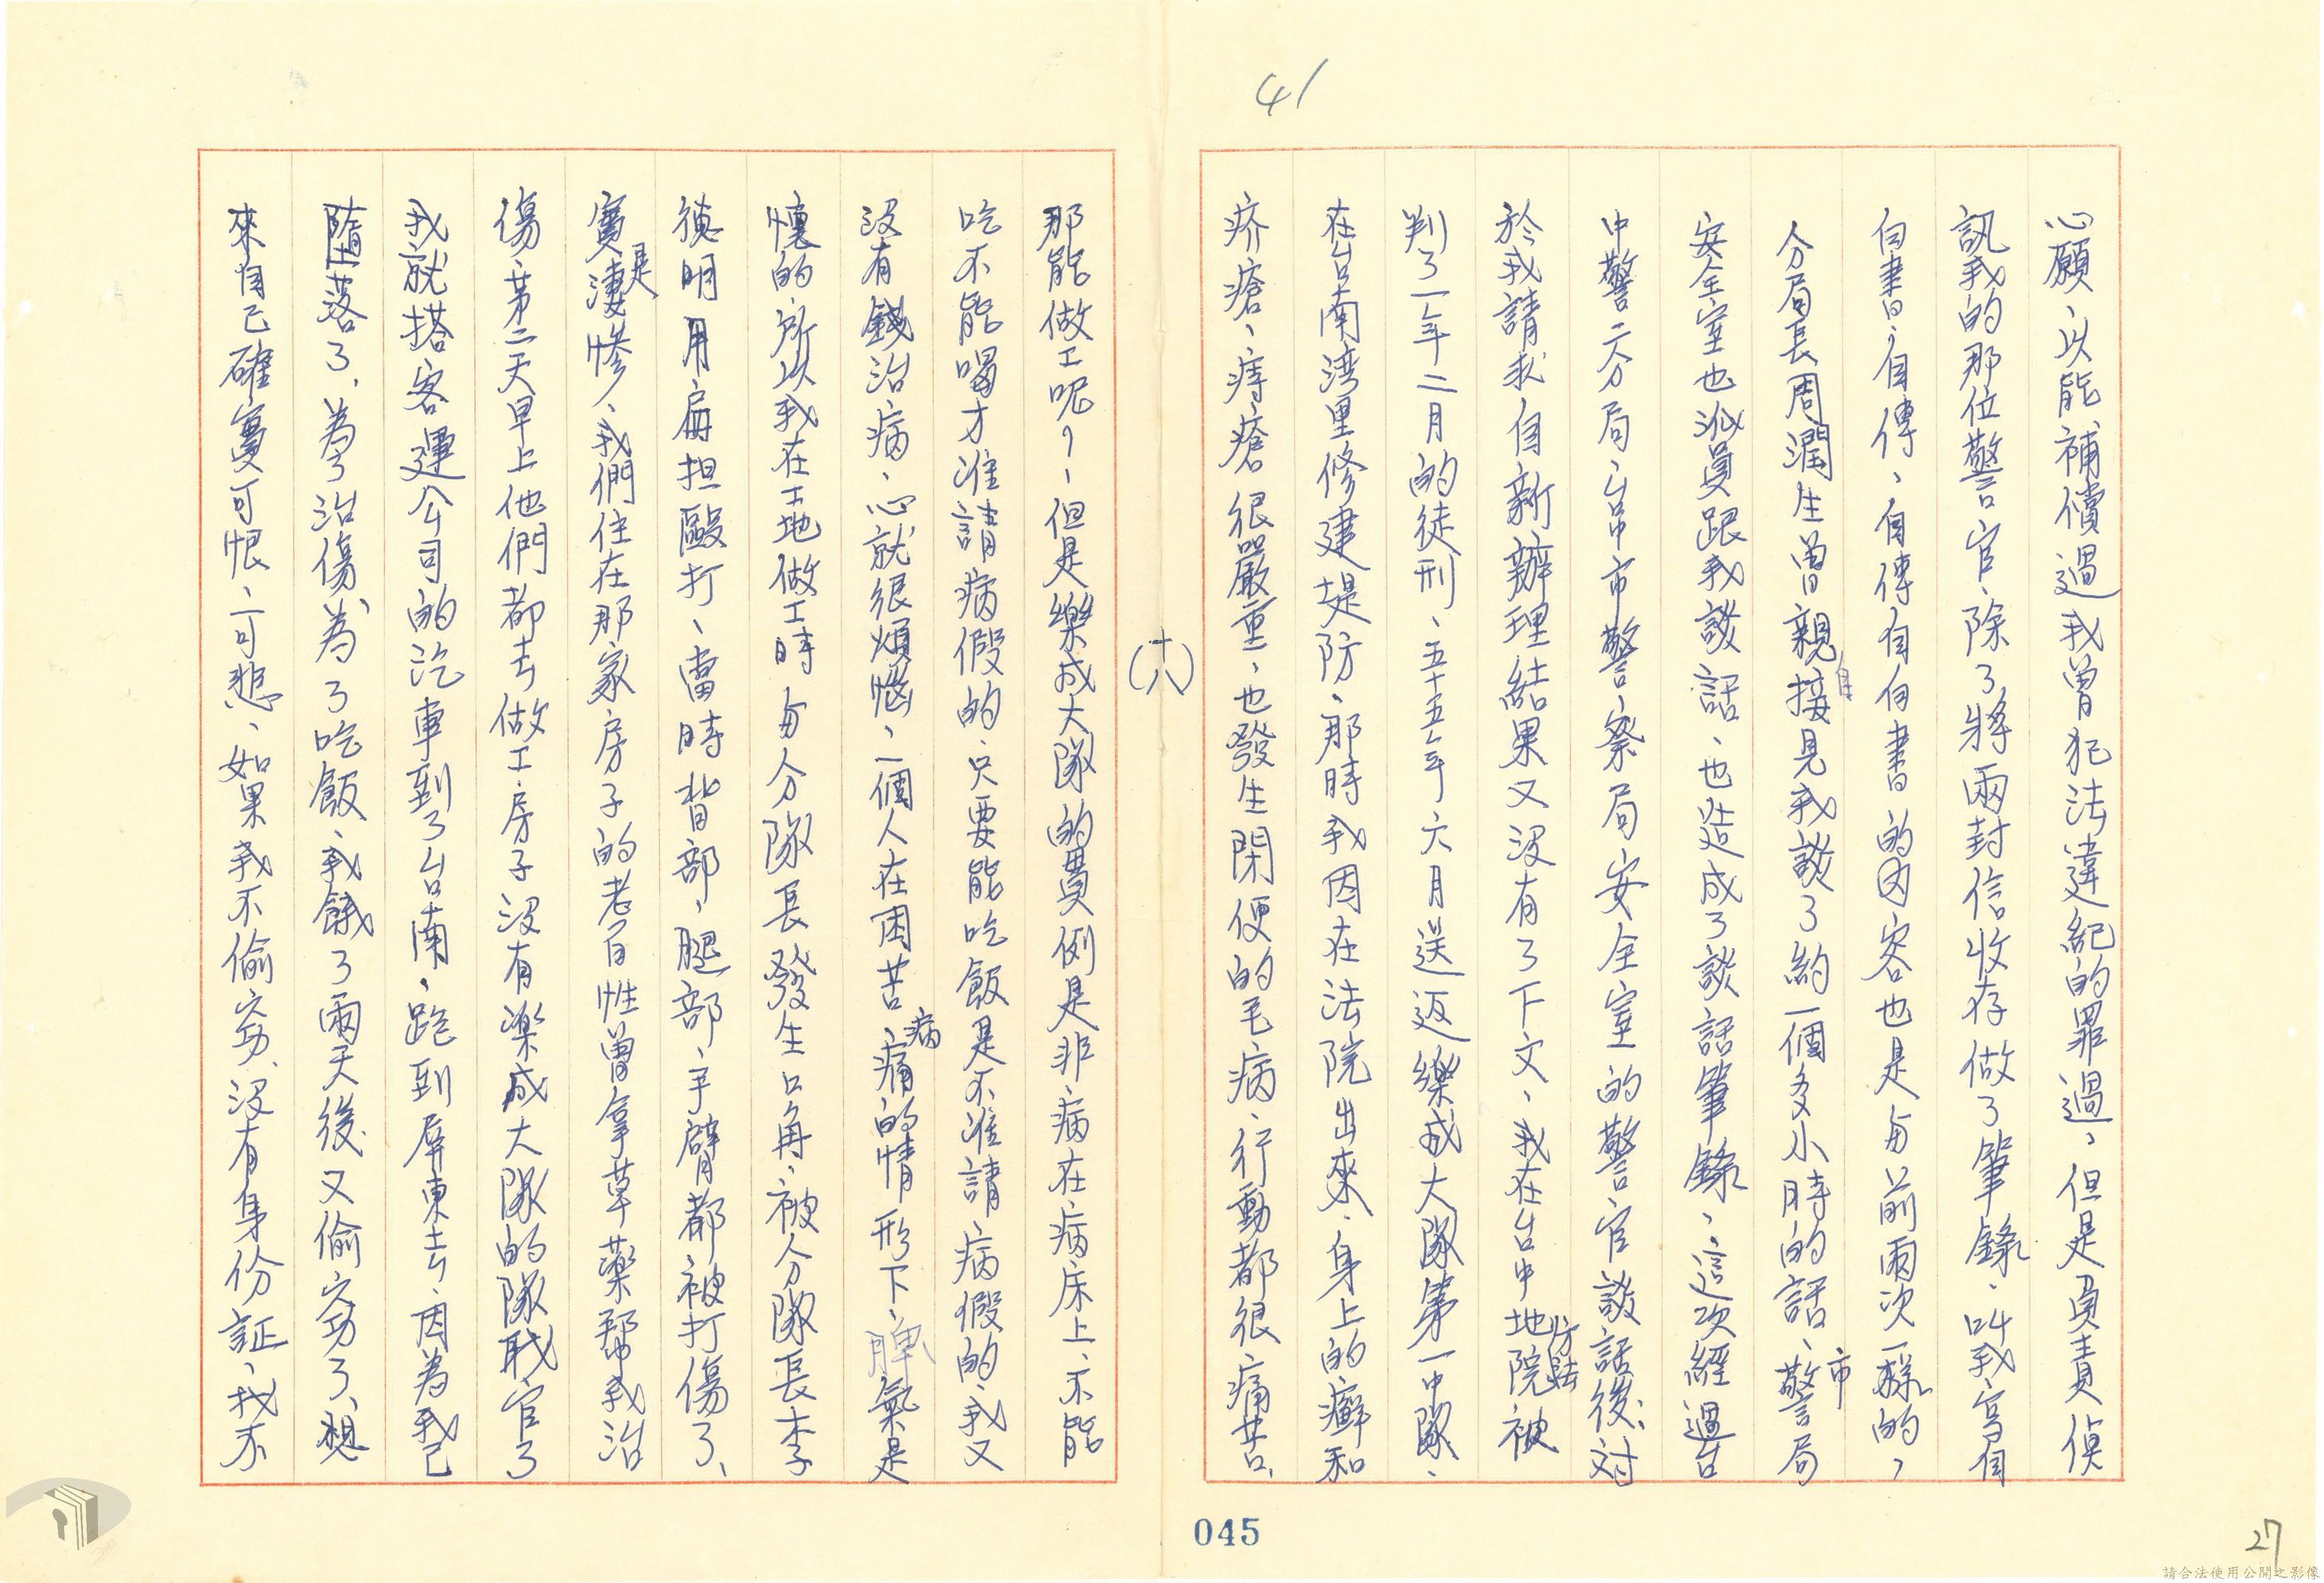 41
心願、以能補償過我曾犯法違紀的罪過，但是負責偵
訊我的那位警官，除了將兩封信收存做了筆錄、叫我寫自
白書、自傳、自傳自白書的內容也是与前兩次一樣的，
分局長周潤生曾親自接見我談了約一個多小時的話、市警局
安全室也派員跟我談話、也造成了談話筆錄、這次經過台
中警二分局、台中市警察局安全室的警官談話後、対
於我請求自新辦理結果又沒有了下文，我在台中地方法院被
判了一年二月的徒刑、五十五年六月送返樂成大隊第一中隊、
在台南湾里修建堤防、那時我因在法院出來、身上的癬和
疥瘡、痔瘡很嚴重、也發生閉便的毛病、行動都很痛苦、
(十八)
那能做工呢？、但是樂成大隊的慣例是非病在病床上、不能
吃不能喝才准請病假的、只要能吃飯是不准請病假的、我又
沒有錢治病、心就很煩惱、一個人在困苦、病痛的情形下、脾氣是
懷的、所以我在工地做工時与分隊長發生口角、被分隊長李
德明用扁担毆打、當時背部、腿部、手臂都被打傷了、
實是淒慘、我們住在那家房子的老百性曾拿草藥幫我治
傷、第二天早上他們都去做工、房子沒有樂成大隊的隊職官了
我就搭客運公司的汽車到了台南、跑到屏東去、因為我已
墮落了、為了治傷、為了吃飯、我餓了兩天後、又偷竊了、想
來自己確實可恨、可悲、如果我不偷竊、沒有身份証、我不
045
27
請合法使用公開之影像